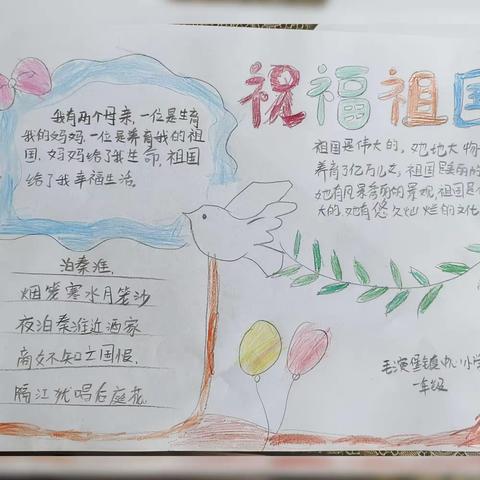 祝福祖国
我有两个母亲,一位是生育
我的妈妈,一位是养育我的祖
国,妈妈给了我生命,祖国
给了我幸福生活。
祖国是伟大的,她地大物
养育了亿万儿女,祖国是美丽的
她有风景秀丽的景观,祖国是
大的,她有悠久灿烂的文化
泊秦淮.
烟笼寒水月笼沙
夜泊秦淮近酒家
商女不知亡国恨.
隔江犹唱后庭花.
毛演堡镇中心小学
一年级